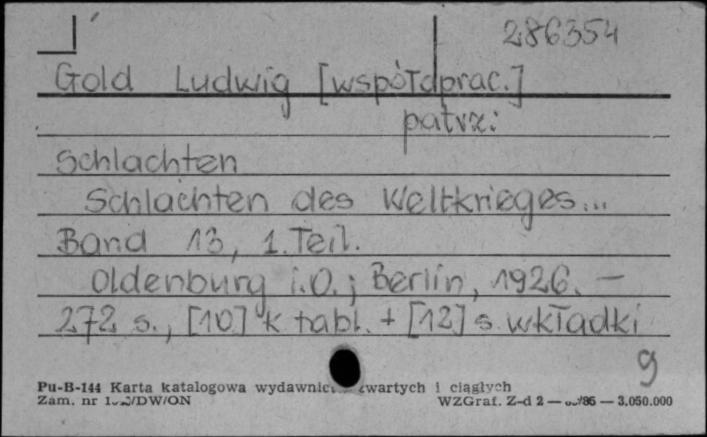 286354
Gold Ludwig [współprac.]
patrz:
Schlachten
Schlachten des Weltkrieges...
Band 13, 1. Teil.
Oldenburg i.O.; Berlin, 1926. —
272 s., [10] k tabl. + [12] s. wkładki
g
Pu-B-144 Karta katalogowa wydawnic zwartych i ciągłych
Zam. nr /DW/ON WZGraf. Z-d 2 — /86 — 3.050.000